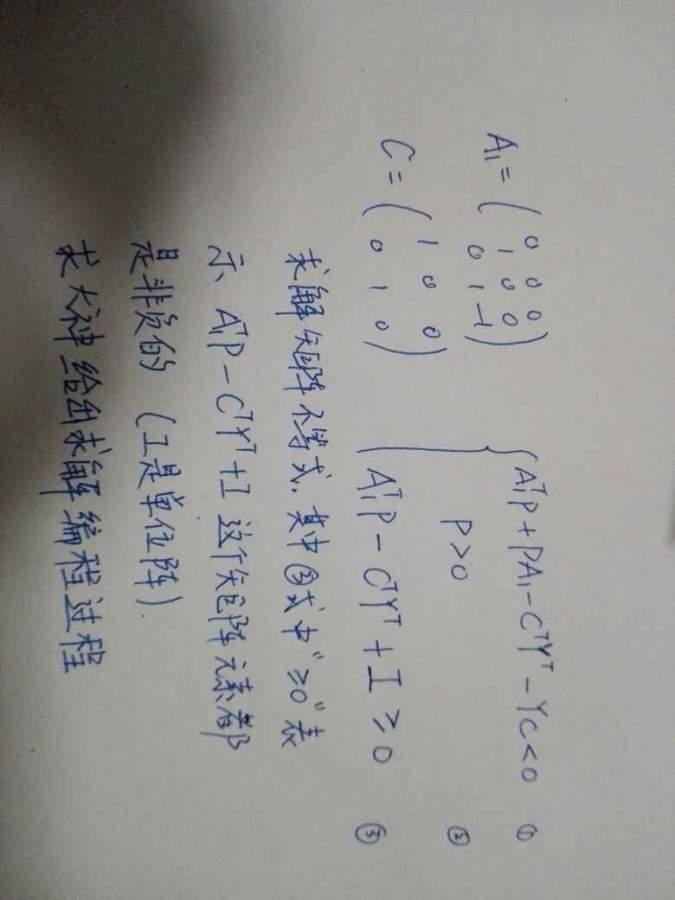 A₁ = ( 0 0 0
1 0 0
0 1 -1 )
{ A₁ᵀP + PA₁ - CᵀYᵀ - YC < 0 ①
P > 0 ②
C = ( 1 0 0
0 1 0 )
A₁ᵀP - CᵀYᵀ + I ≥ 0 ③
求解矩阵不等式. 其中③式中"≥0"表
示 A₁ᵀP - CᵀYᵀ + I 这个矩阵元素都
是非负的 (I是单位阵).
求大神给出求解编程过程